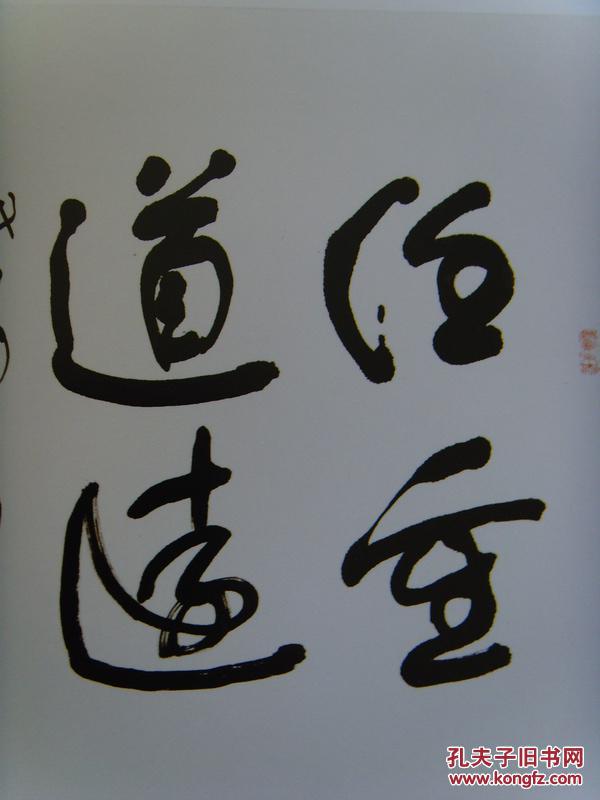 任重
道遠
孔夫子旧书网
www.kongfz.com